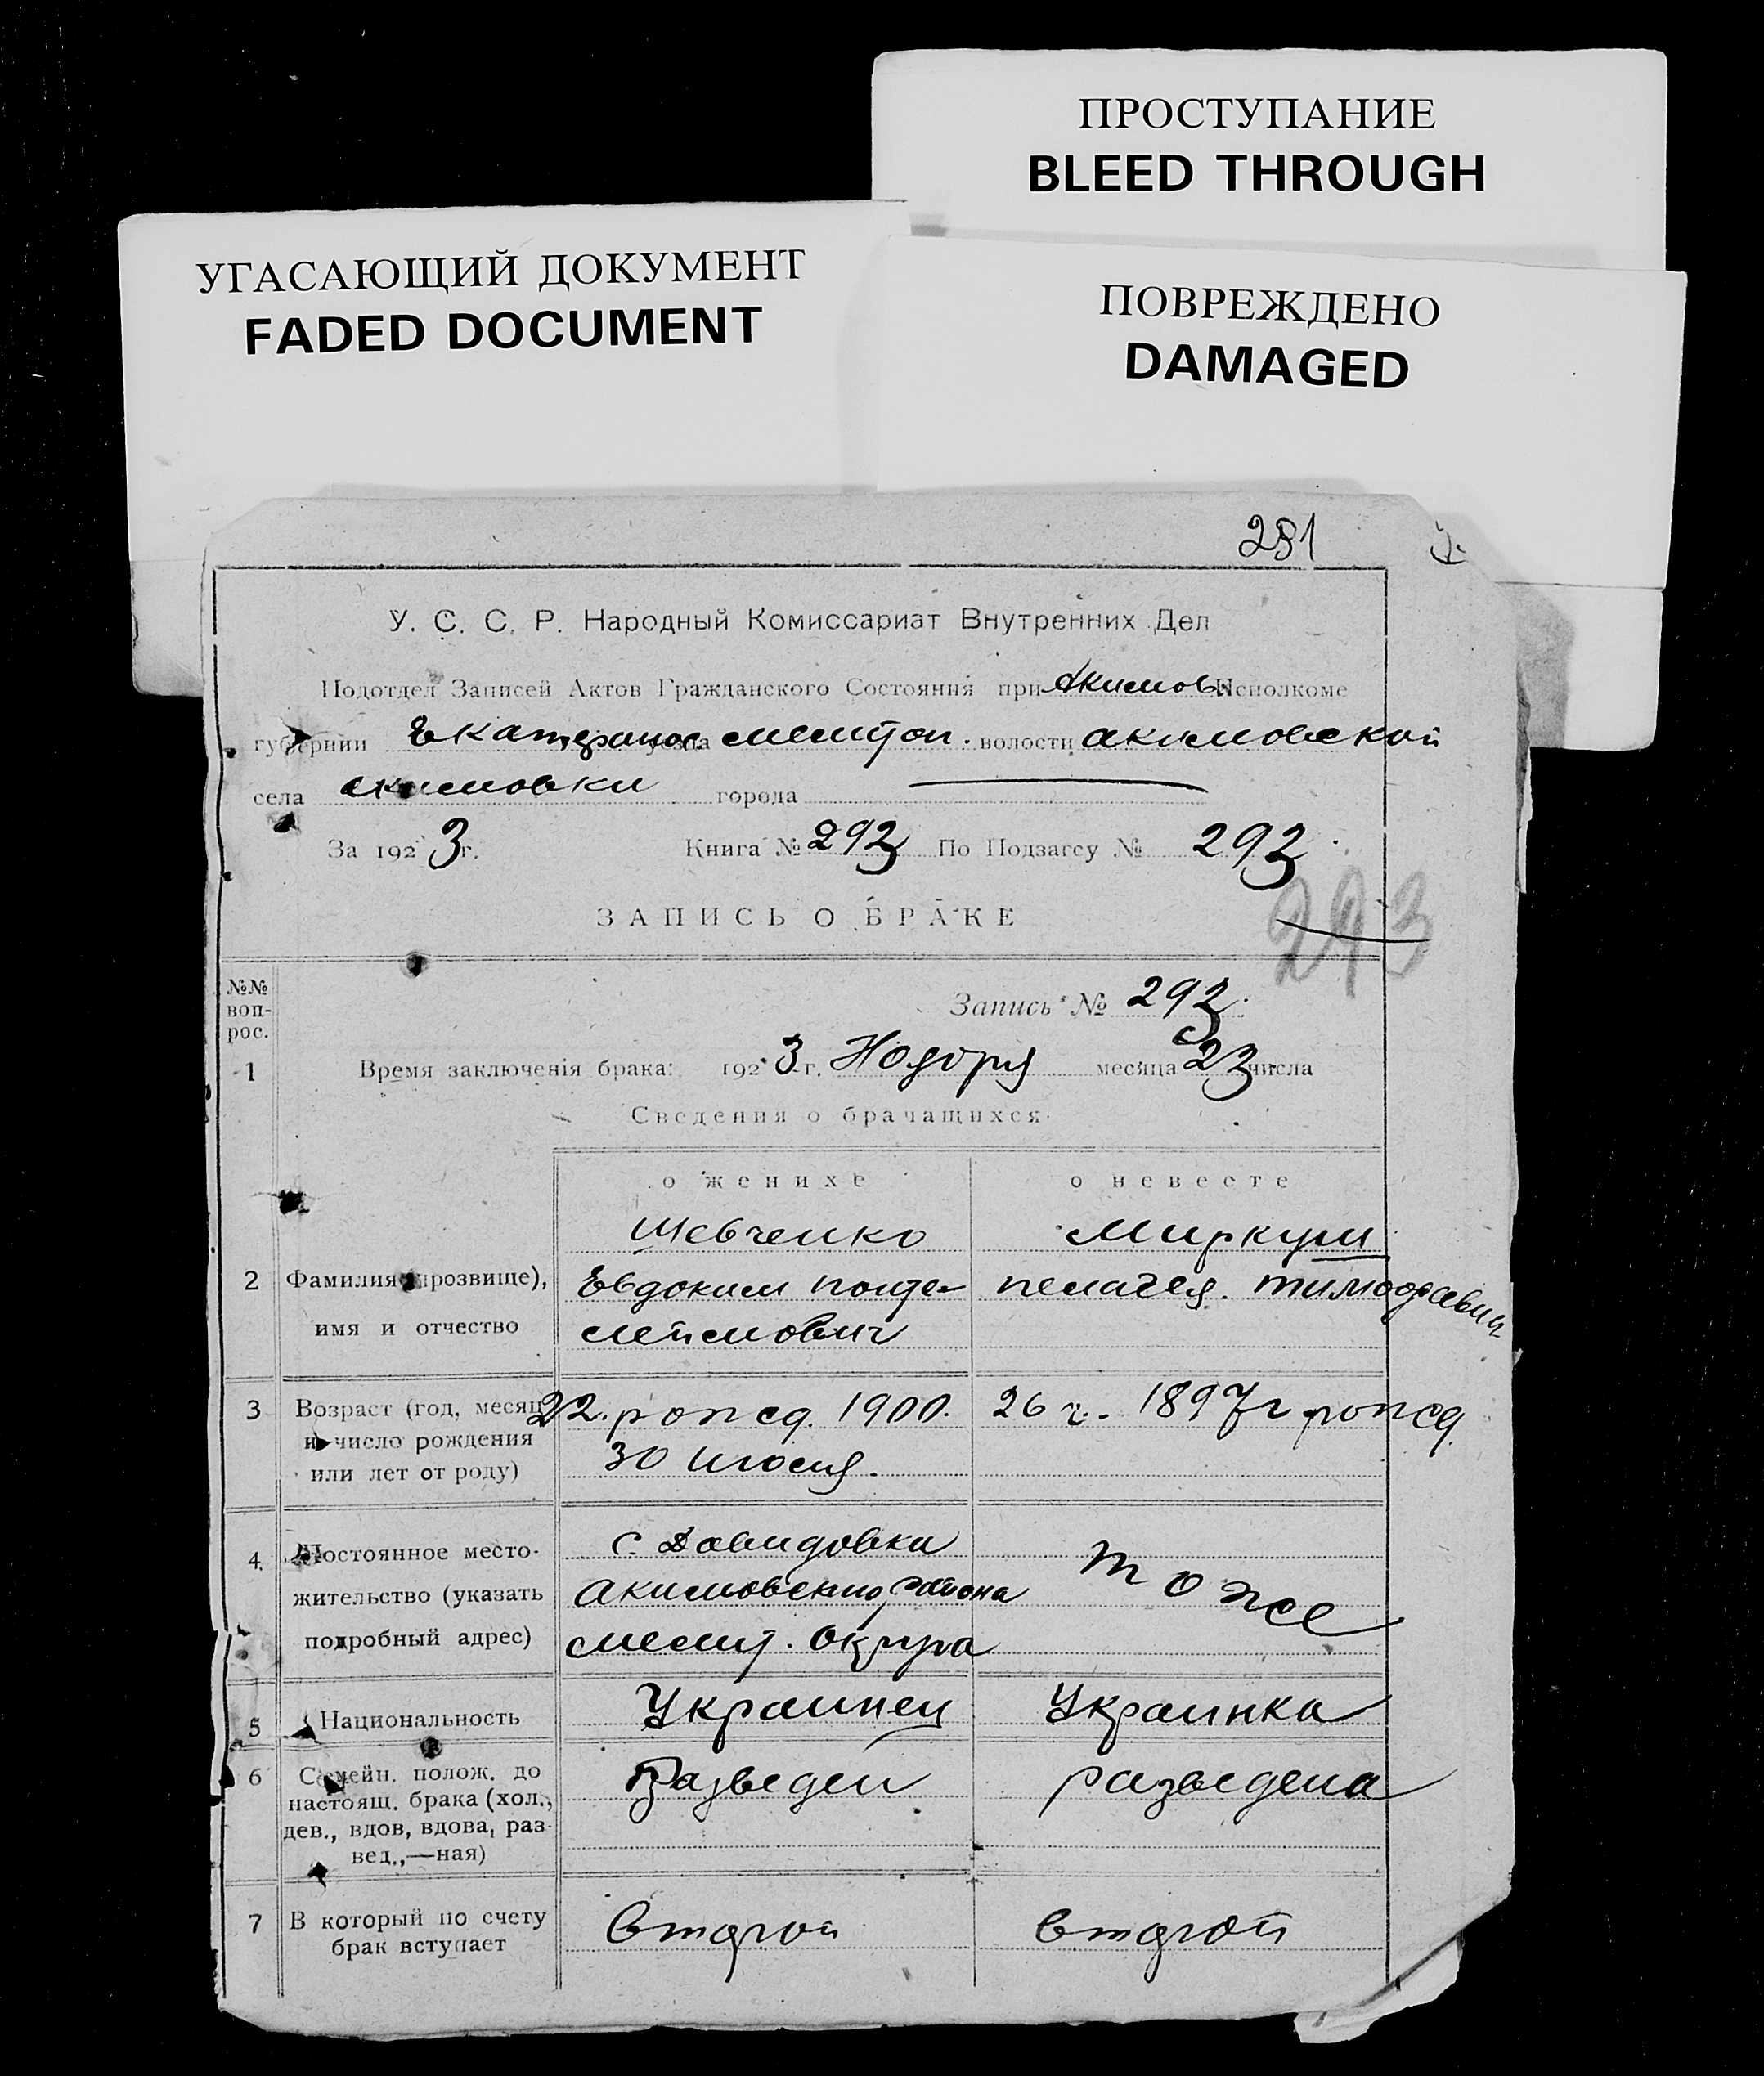 ПРОСТУПАНИЕ
BLEED THROUGH
УГАСАЮЩИЙ ДОКУМЕНТ
FADED DOCUMENT
ПОВРЕЖДЕНО
DAMAGED
У. С. С. Р. Народный Комиссариат Внутренних Дел
Подотдел Записей Актов Гражданского Состояния при Акимовс Исполкоме
губернии Екатеринос уезда мелитоп. волости акимовской
села акимовки города
За 1923 г. Книга № 293 По Подзагсу № 293
293
ЗАПИСЬ О БРАКЕ
№№ воп-рос.
Запись № 293
1 Время заключенія брака: 1923 г. Ноября месяца 23 числа
Сведения о брачащихся
о женихе о невесте
Шевченко
2 Фамилия (прозвище), Евдоким пелагея. тимофеевна
имя и отчество
3 Возраст (год, месяц 22. рожд. 1900. 26 г. 1897 г рожд.
и число рождения 30 июля.
или лет от роду)
4. Постоянное место- с. Давидовка тоже
жительство (указать акимовского района
подробный адрес) мелит. округа
5 Национальность Украинец Украинка
6 Семейн. полож. до Разведен разведена
настоящ. брака (хол.,
дев., вдов, вдова, раз-
вед.,—ная)
7 В который по счету второй второй
брак вступает